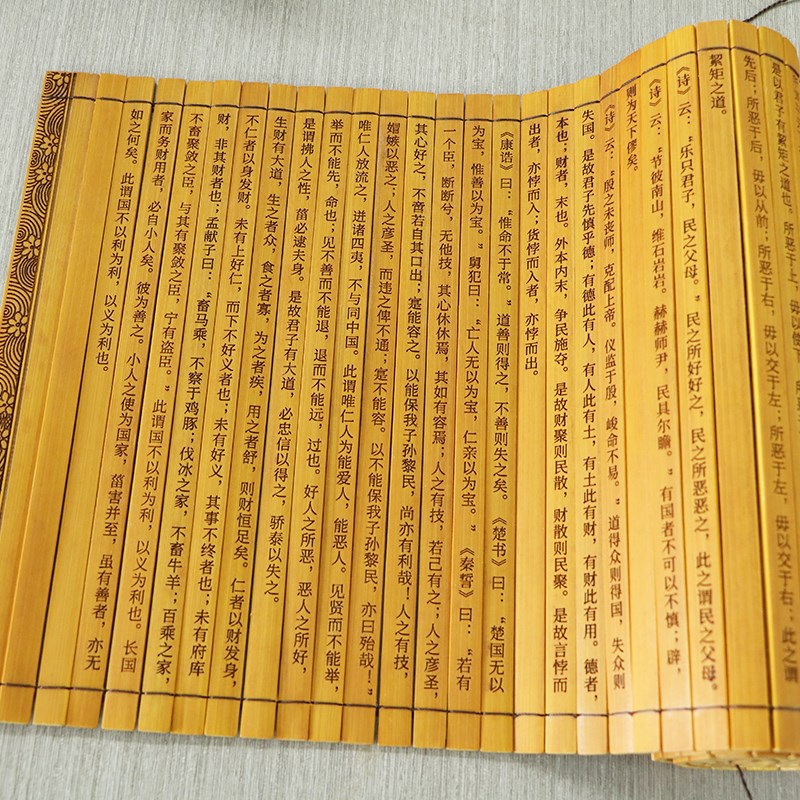 是以君子有絜矩之道也。所恶于上，毋以使下
先后；所恶于后，毋以从前；所恶于右，毋以交于左；所恶于左，毋以交于右；此之谓
絜矩之道。
《诗》云：“乐只君子，民之父母。”民之所好好之，民之所恶恶之，此之谓民之父母。
《诗》云：“节彼南山，维石岩岩。赫赫师尹，民具尔瞻。”有国者不可以不慎；辟，
则为天下僇矣。
《诗》云：“殷之未丧师，克配上帝。仪监于殷，峻命不易。”道得众则得国，失众则
失国。是故君子先慎乎德；有德此有人，有人此有土，有土此有财，有财此有用。德者，
本也；财者，末也。外本内末，争民施夺。是故财聚则民散，财散则民聚。是故言悖而
出者，亦悖而入；货悖而入者，亦悖而出。
《康诰》曰：“惟命不于常。”道善则得之，不善则失之矣。《楚书》曰：“楚国无以
为宝，惟善以为宝。”舅犯曰：“亡人无以为宝，仁亲以为宝。”《秦誓》曰：“若有
一个臣，断断兮，无他技，其心休休焉，其如有容焉；人之有技，若己有之；人之彦圣，
其心好之，不啻若自其口出；寔能容之。以能保我子孙黎民，尚亦有利哉！人之有技，
媢嫉以恶之；人之彦圣，而违之俾不通；寔不能容。以不能保我子孙黎民，亦曰殆哉！”
唯仁人放流之，迸诸四夷，不与同中国。此谓唯仁人为能爱人，能恶人。见贤而不能举，
举而不能先，命也；见不善而不能退，退而不能远，过也。好人之所恶，恶人之所好，
是谓拂人之性，菑必逮夫身。是故君子有大道，必忠信以得之，骄泰以失之。
生财有大道，生之者众，食之者寡，为之者疾，用之者舒，则财恒足矣。仁者以财发身，
不仁者以身发财。未有上好仁，而下不好义者也；未有好义，其事不终者也；未有府库
财，非其财者也；孟献子曰：“畜马乘，不察于鸡豚；伐冰之家，不畜牛羊；百乘之家，
不畜聚敛之臣，与其有聚敛之臣，宁有盗臣。”此谓国不以利为利，以义为利也。长国
家而务财用者，必自小人矣。彼为善之。小人之使为国家，菑害并至，虽有善者，亦无
如之何矣。此谓国不以利为利，以义为利也。